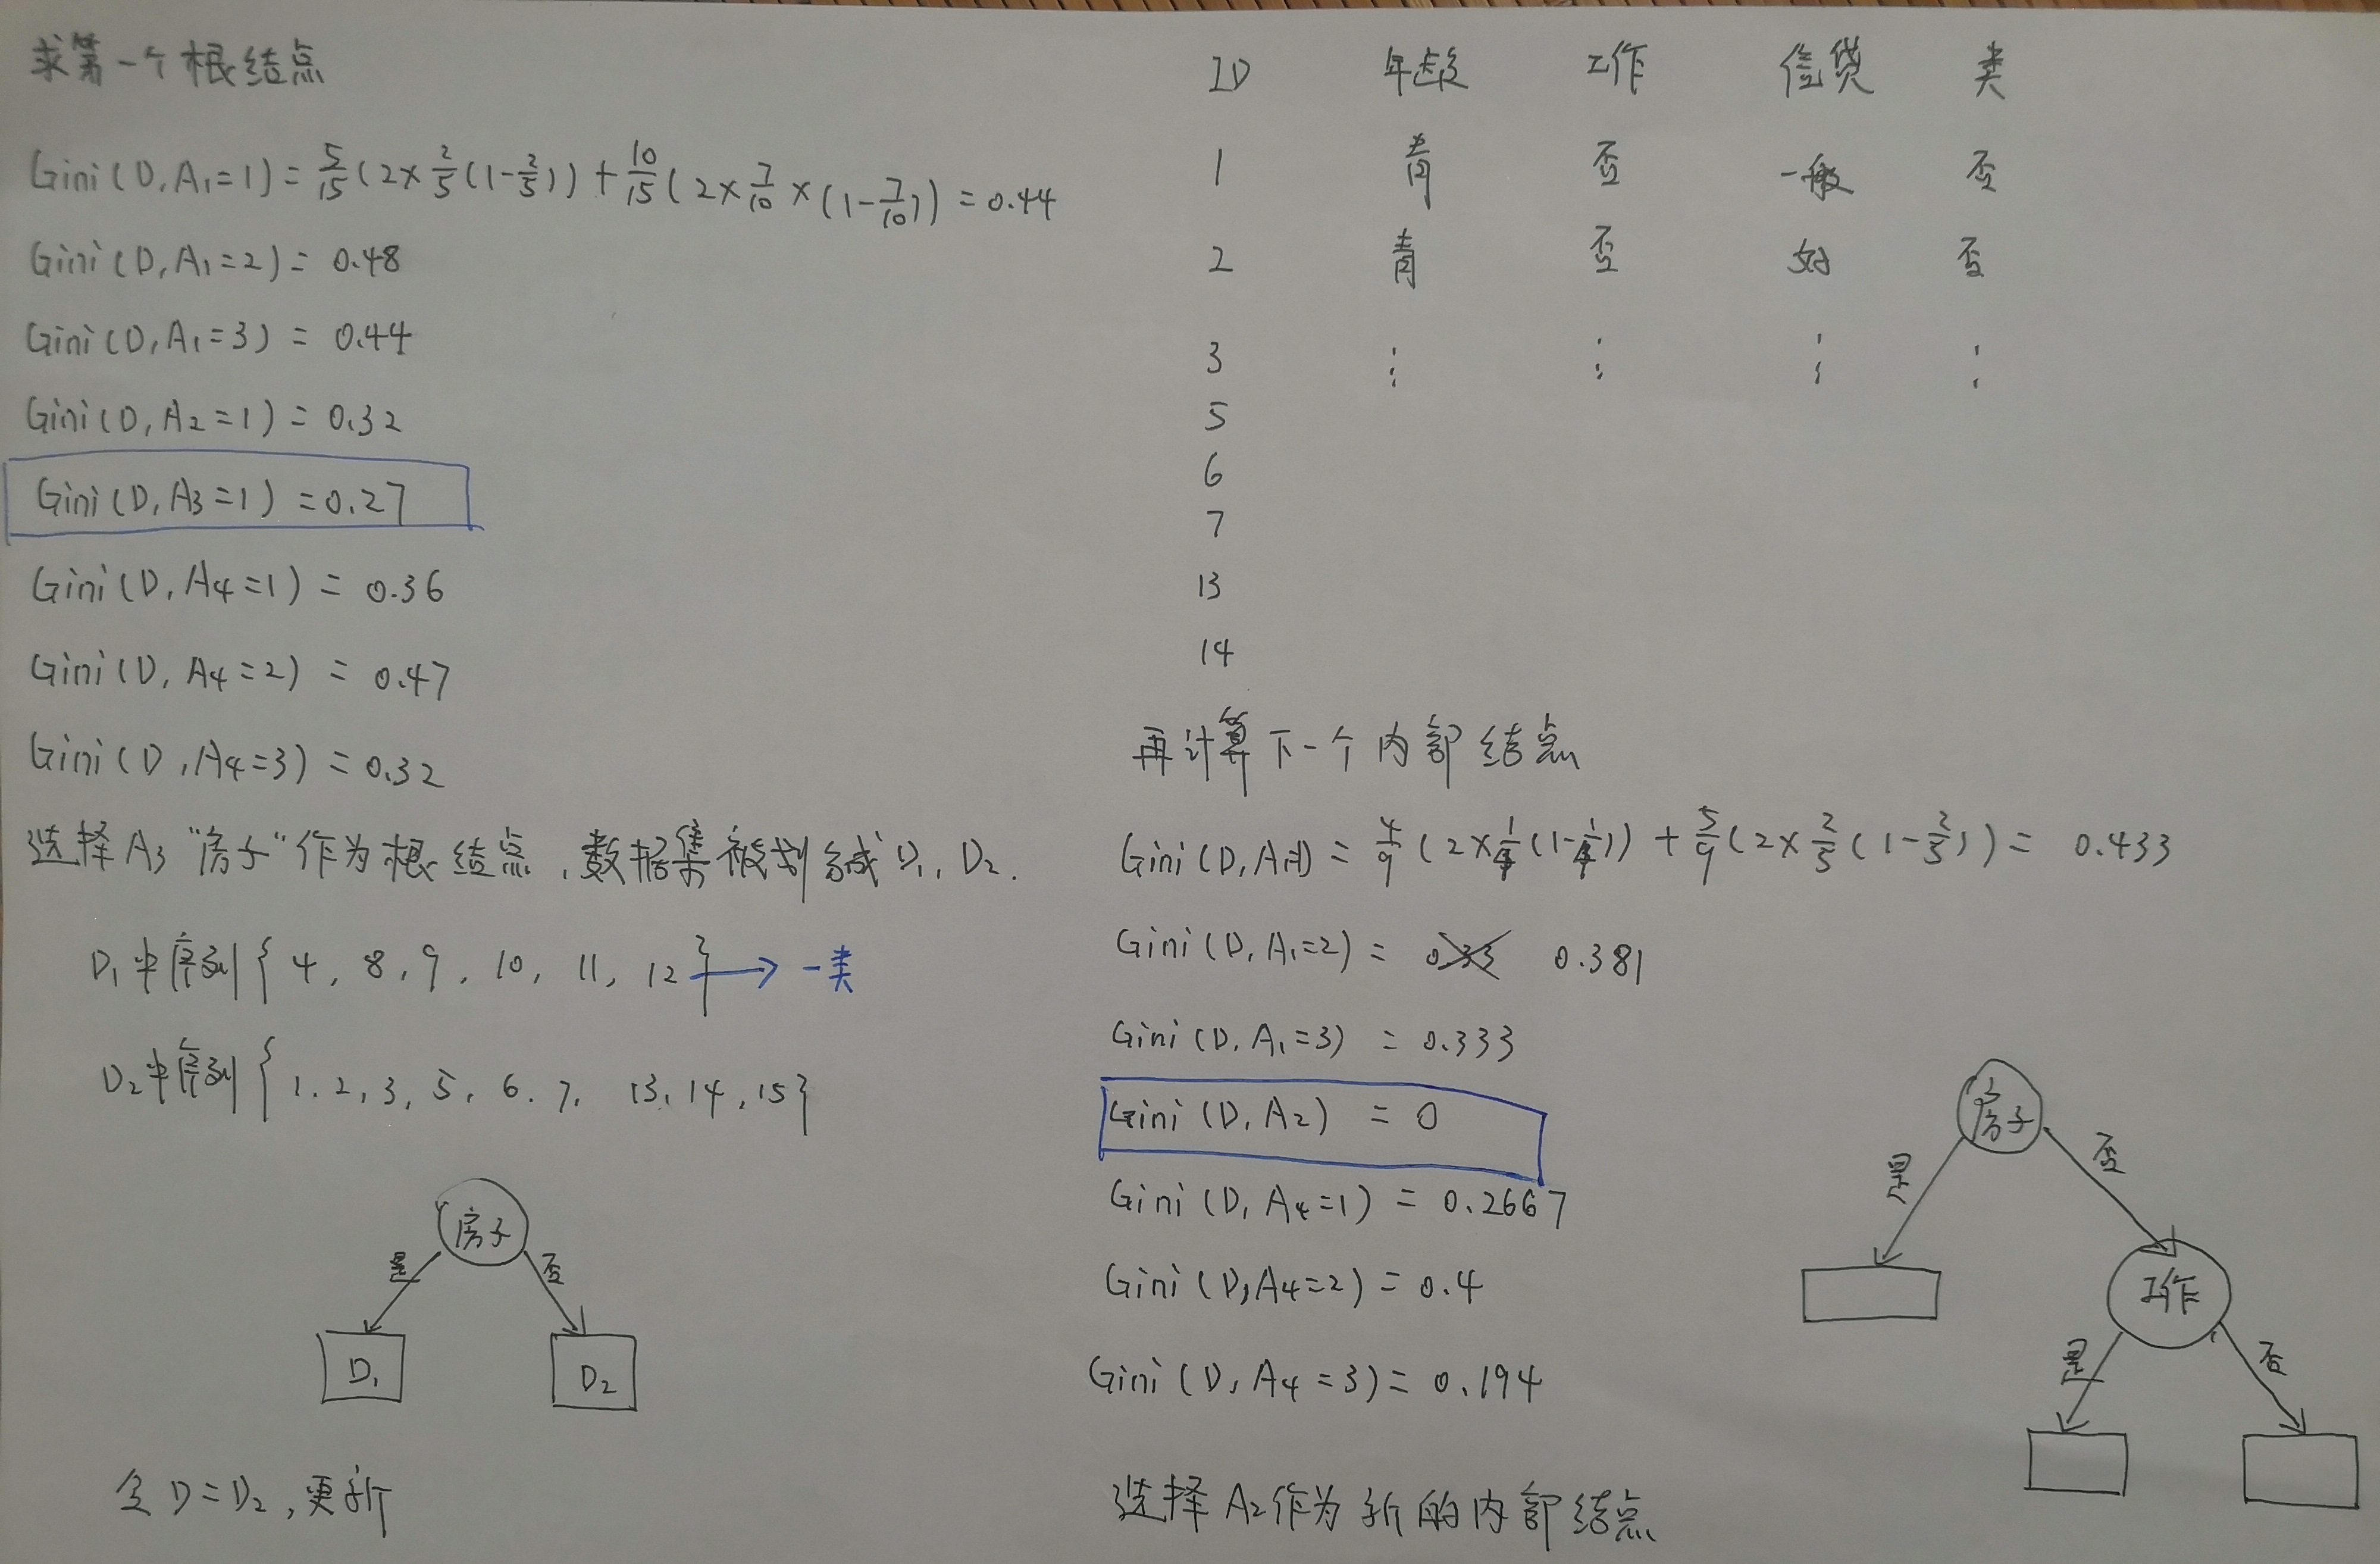 求第一个根结点
Gini(D,A₁=1) = 5/15(2×2/5(1-2/5)) + 10/15(2×7/10×(1-7/10)) = 0.44
Gini(D,A₁=2) = 0.48
Gini(D,A₁=3) = 0.44
Gini(D,A₂=1) = 0.32
Gini(D,A₃=1) = 0.27
Gini(D,A₄=1) = 0.36
Gini(D,A₄=2) = 0.47
Gini(D,A₄=3) = 0.32
选择A₃“房子”作为根结点,数据集被划分成D₁,D₂.
D₁中序列{4,8,9,10,11,12}→一类
D₂中序列{1.2,3,5,6.7,13,14,15}
房子
是 否
D₁ D₂
令D=D₂,更新
ID 年龄 工作 信贷 类
1 青 否 一般 否
2 青 否 好 否
3 ⋮ ⋮ ⋮ ⋮
5
6
7
13
14
再计算下一个内部结点
Gini(D,A₁=1) = 4/9(2×1/4(1-1/4)) + 5/9(2×2/5(1-2/5)) = 0.433
Gini(D,A₁=2) = 0.381
Gini(D,A₁=3) = 0.333
Gini(D,A₂) = 0
Gini(D,A₄=1) = 0.2667
Gini(D,A₄=2) = 0.4
Gini(D,A₄=3) = 0.194
选择A₂作为新的内部结点
房子
是 否
工作
是 否